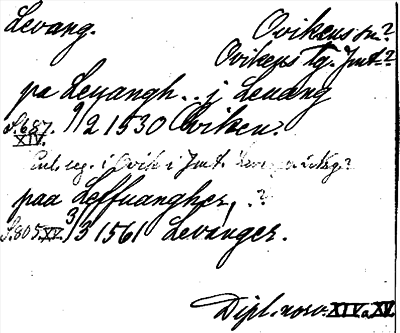 Levang. Ovikens sn.?
Ovikens tg. Jmt.?
pa Leyangh.. j Leuang
S. 687. XIV. 9/2 1530 Oviken.
i Ovik i Jmt.
paa Leffuangher, ?
S. 805. XV. 3/3 1561 Levanger.
Dipl. norv. XIV o. XV.